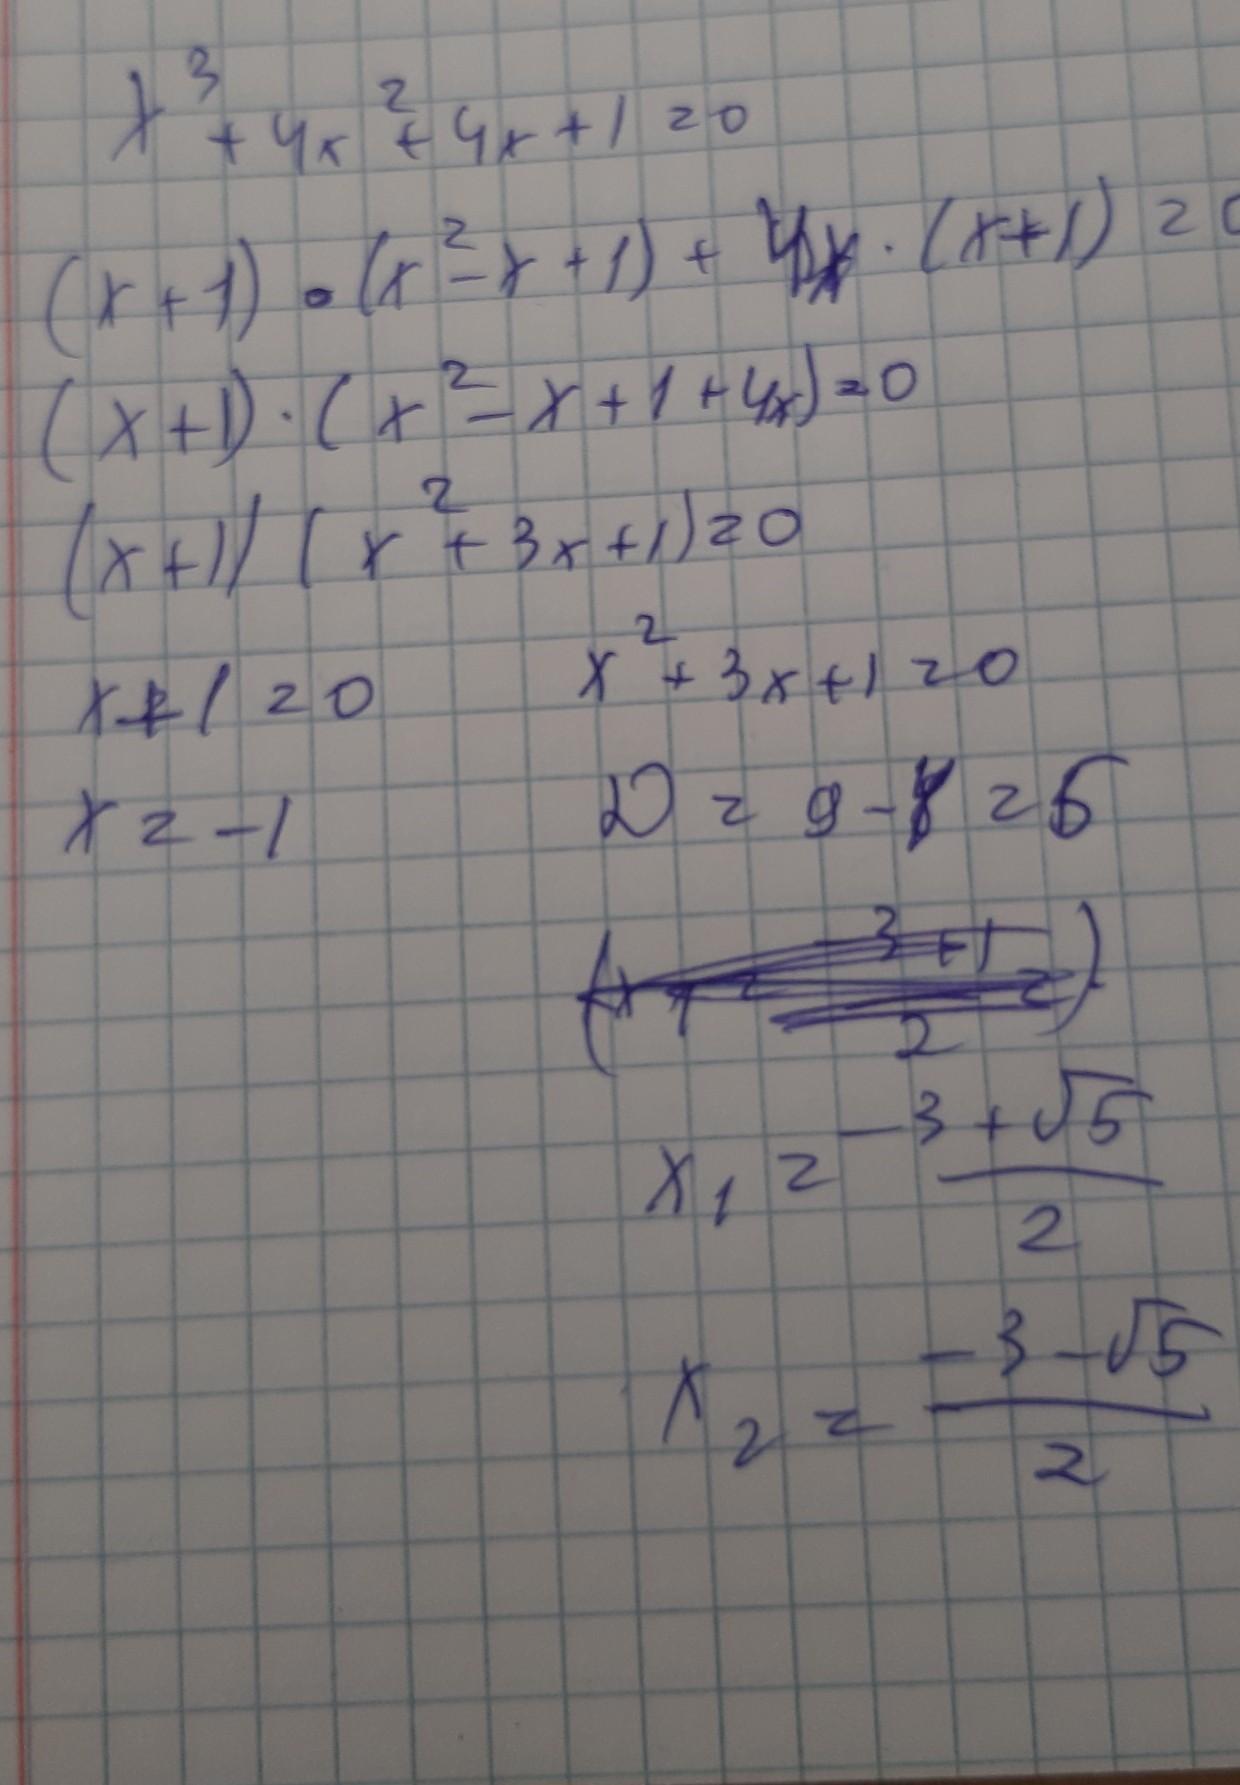 x³ + 4x² + 4x + 1 = 0
(x + 1) · (x² - x + 1) + 4x · (x + 1) = 0
(x + 1) · (x² - x + 1 + 4x) = 0
(x + 1) (x² + 3x + 1) = 0
x + 1 = 0    x² + 3x + 1 = 0
x = -1    D = 9 - 4 = 5
x₁ = (-3 + √5) / 2
x₂ = (-3 - √5) / 2